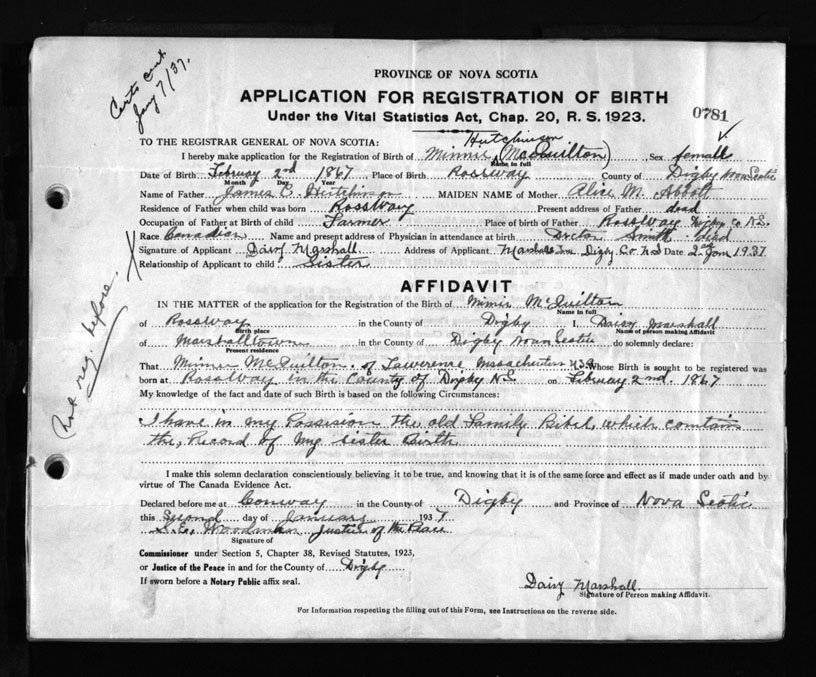 Certs sent
Jany 7/37.
PROVINCE OF NOVA SCOTIA
APPLICATION FOR REGISTRATION OF BIRTH
Under the Vital Statistics Act, Chap. 20, R. S. 1923.
0781
TO THE REGISTRAR GENERAL OF NOVA SCOTIA:
Hutchinson
I hereby make application for the Registration of Birth of Minnie (MacQuilton) Sex female
Name in full
Date of Birth February 2nd 1867 Place of Birth Rossway County of Digby Nova Scotia
Month Day Year
Name of Father James E. Hutchinson MAIDEN NAME of Mother Alice M. Abbott
Residence of Father when child was born Rossway Present address of Father dead
Occupation of Father at Birth of child Farmer Place of birth of Father Rossway Digby Co N.S.
Race Canadian Name and present address of Physician in attendance at birth Doctor Smith died
Signature of Applicant Daisy Marshall Address of Applicant Digby Co N.S Date 2nd Jan 1937
Relationship of Applicant to child Sister
Not reg. before.
AFFIDAVIT
IN THE MATTER of the application for the Registration of the Birth of Minnie McQuilton
Name in full
of Rossway in the County of Digby I, Daisy Marshall
Birth place Name of person making Affidavit
of Marshalltown in the County of Digby Nova Scotia do solemnly declare:
Present residence
That Minnie McQuilton, of Lawerence Massachusetts U.S.A. Whose Birth is sought to be registered was
born at Rossway in the County of Digby N.S. on February 2nd. 1867
My knowledge of the fact and date of such Birth is based on the following Circumstances:
I have in my Possision the old Family Bibel, which comtains
the, Record of my sister Birth
I make this solemn declaration conscientiously believing it to be true, and knowing that it is of the same force and effect as if made under oath and by
virtue of The Canada Evidence Act.
Declared before me at Conway in the County of Digby and Province of Nova Scotia
this Second day of January 1937
Woodman Justice of the Peace
Signature of
Commissioner under Section 5, Chapter 38, Revised Statutes, 1923,
or Justice of the Peace in and for the County of Digby
If sworn before a Notary Public affix seal.
Daisy Marshall.
Signature of Person making Affidavit.
For Information respecting the filling out of this Form, see Instructions on the reverse side.